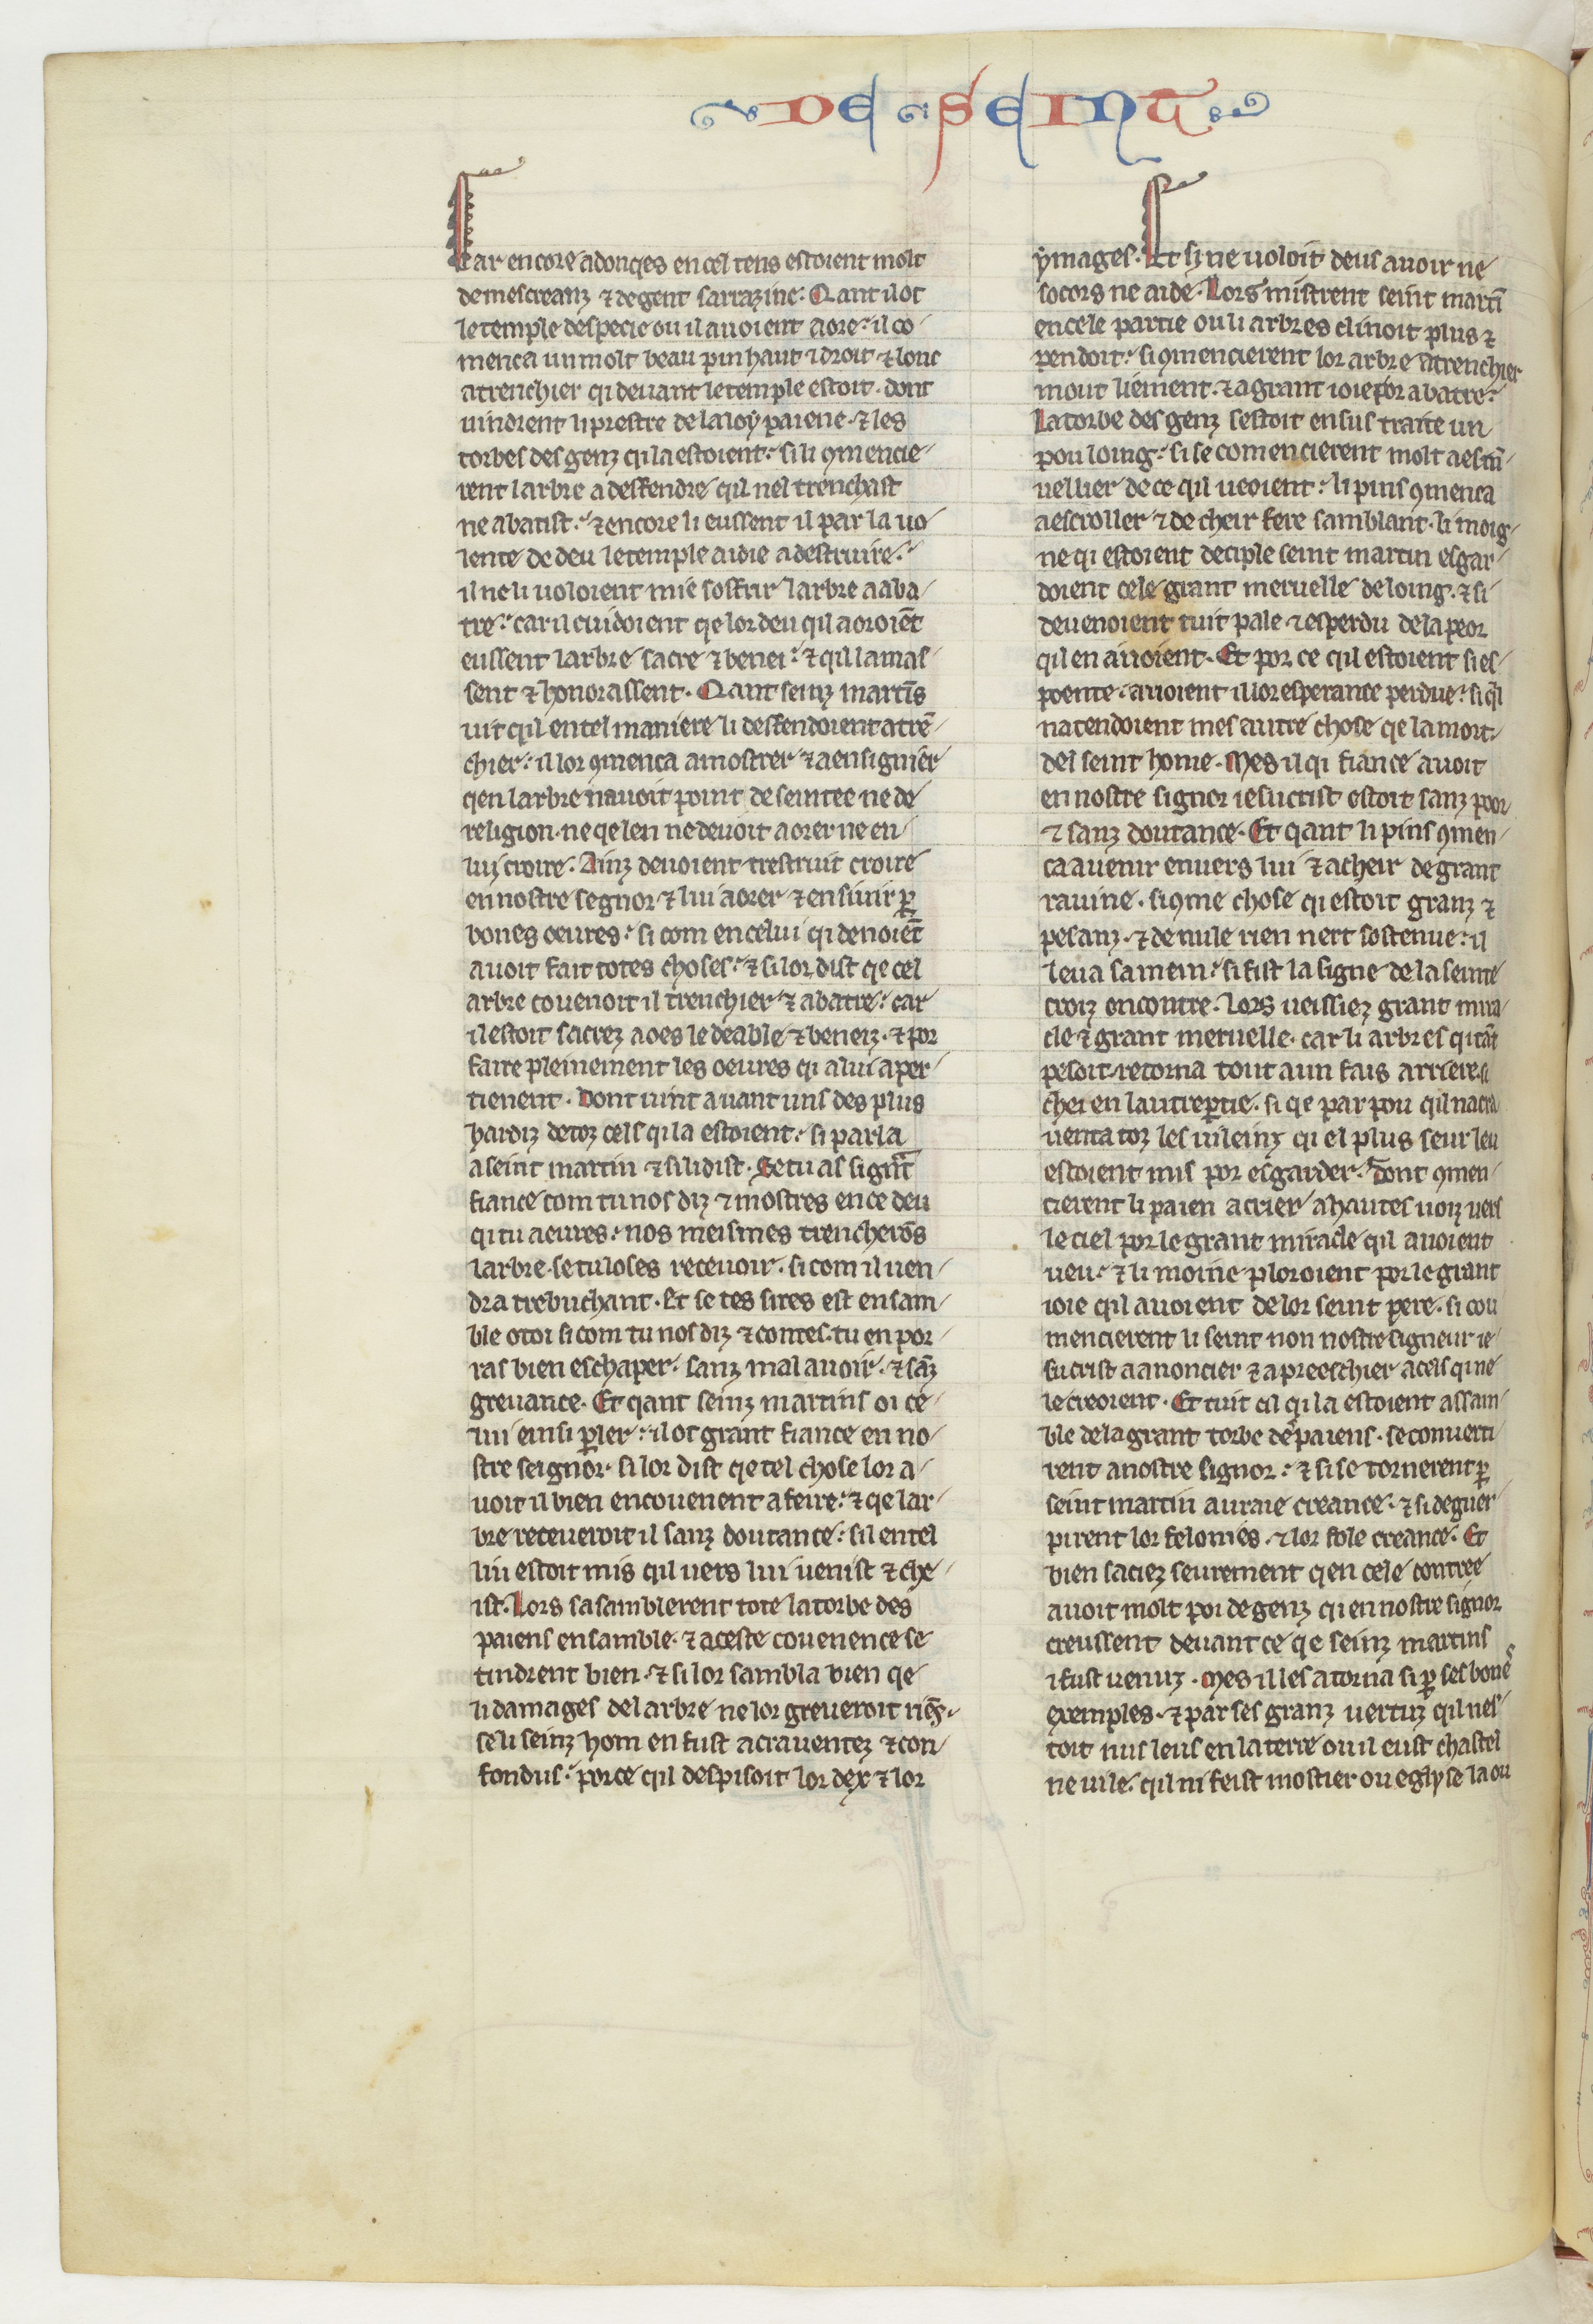 DE SEINT
Car encore adonqes en cel tens estoient molt
de mescreanz ⁊ de gent sarrazine. Qant il ot
le temple despecie ou il auoient aore. il co-
menca un molt beau pin haut ⁊ droit ⁊ lonc
a trenchier qi deuant le temple estoit. dont
uindrent li prestre de la loy paiene. ⁊ les
torbes des genz qi la estoient. si li ꝯmencie-
rent larbre a deffendre qil nel trenchast
ne abatist. ⁊ encore li eussent il par la uo-
lente de deu le temple aidie a destruire.
il ne li uoloient mie soffrir larbre a aba-
tre. car il cuidoient qe lor deu qil aoroiēt
eussent larbre sacre ⁊ benei. ⁊ qil lamas-
sent ⁊ honorassent. Qant seinz martīs
uit qil en tel maniere li deffendoient a trē-
chier. il lor ꝯmenca a mostrer ⁊ a ensignier
qen larbre nauoit point de seintee ne de
religion. ne qe len ne deuoit aorer ne en
lui croire. Ainz deuoient trestuit croire
en nostre segnor ⁊ lui aorer ⁊ ensiuir ꝑ
bones oeures. si com en celui qi de noiēt
auoit fait totes choses. ⁊ si lor dist qe cel
arbre couenoit il trenchier ⁊ abatre. car
il estoit sacrez a oes le deable ⁊ beneiz. ⁊ por
faire pleinement les oeures qi a lui aper-
tienent. Dont uint auant uns des plus
hardiz de toz cels qi la estoient. si parla
a seint martin ⁊ si li dist. Se tu as si grāt
fiance com tu nos diz ⁊ mostres en ce deu
qi tu aeures. nos meismes trencherōs
larbre. se tu loses receuoir. si com il uen-
dra trebuchant. Et se tes sires est ensam-
ble o toi si com tu nos diz ⁊ contes. tu en por-
ras bien eschaper. sanz mal auoir. ⁊ sāz
greuance. Et qant seinz martins oi ce-
lui einsi ꝑler. il ot grant fiance en no-
stre seignor. si lor dist qe tel chose lor a-
uoit il bien encouenent a feire. ⁊ qe lar-
bre receueroit il sanz doutance. sil en tel
liu estoit mis qil uers lui uenist ⁊ che-
ist. Lors sasamblerent tote la torbe des
paiens ensamble. ⁊ a ceste couenence se
tindrent bien. ⁊ si lor sambla bien qe
li damages del arbre ne lor greueroit riēs.
se li seinz hom en fust acrauentez ⁊ con-
fondus. por ce qil despisoit lor dex ⁊ lor
ymages. Et si ne uoloit deus auoir ne
socors ne aide. Lors mistrent seint martī
en cele partie ou li arbres clinoit plus ⁊
pendoit. si ꝯmencierent lor arbre a trenchier
mout liement. ⁊ a grant ioie por abatre.
La torbe des genz sestoit ensus traite un
pou loing. si se comencierent molt a esm̄-
uellier de ce qil ueoient. li pins ꝯmenca
a escroller ⁊ de cheir fere samblant. li moig-
ne qi estoient deciple seint martin esgar-
doient cele grant meruelle de loing. ⁊ si
deuenoient tuit pale ⁊ esperdu de la peor
qil en auoient. Et por ce qil estoient si es-
poente. auoient il lor esperance perdue. si qil
natendoient mes autre chose qe la mort.
del seint home. Mes il qi fiance auoit
en nostre signor iesucrist estoit sanz poor
⁊ sanz doutance. Et qant li pins ꝯmen-
ca a uenir enuers lui ⁊ a cheir de grant
rauine. si ꝯme chose qi estoit granz ⁊
pesanz. ⁊ de nule rien nert sostenue. il
leua sa mein. si fist la signe de la seinte
croiz encontre. Lors ueissiez grant mira-
cle ⁊ grant meruelle. car li arbres qi tāt
pesoit retorna tout a un fais arriere. si
chei en lautre ꝑtie. si qe par pou qil nacra-
uenta toz les uileinz qi el plus seur leu
estoient mis por esgarder. Dont ꝯmen-
cierent li paien a crier a hautes uoiz uers
le ciel por le grant miracle qil auoient
ueu. ⁊ li moine ploroient por le grant
ioie qil auoient de lor seint pere. si cou-
mencierent li seint non nostre signeur ie-
sucrist a anoncier ⁊ a preeschier a cels qi ne
le creoient. Et tuit cil qi la estoient assam-
ble de la grant torbe de paiens. se conuerti-
rent a nostre signor. ⁊ si se tornerent ꝑ
seint martin a uraie creance. ⁊ si deguer-
pirent lor felonies. ⁊ lor fole creance. Et
bien saciez seurement qen cele contree
auoit molt poi de genz qi en nostre signor
creussent deuant ce qe seinz martins
i fust uenuz. Mes il les atorna si ꝑ ses bones
exemples. ⁊ par ses granz uertuz qil nes-
toit nus leus en la terre ou il eust chastel
ne uile. qil ni feist mostier ou eglyse la ou